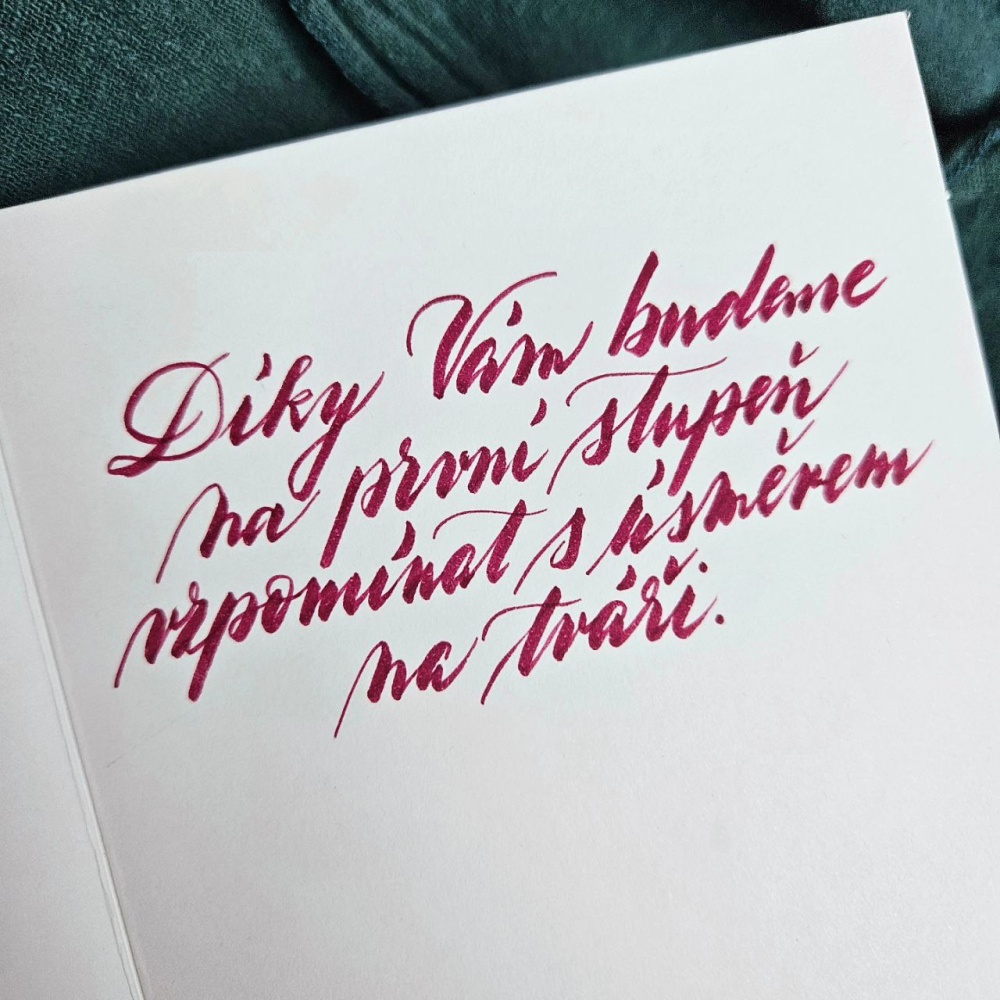 Díky Vám budeme
na první stupeň
vzpomínat s úsměvem
na tváři.